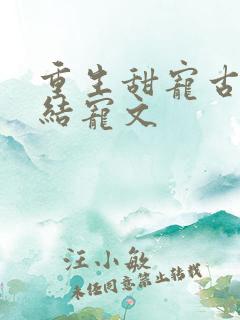 重生甜寵古
結寵文
汪小敏
未经同意禁止转载